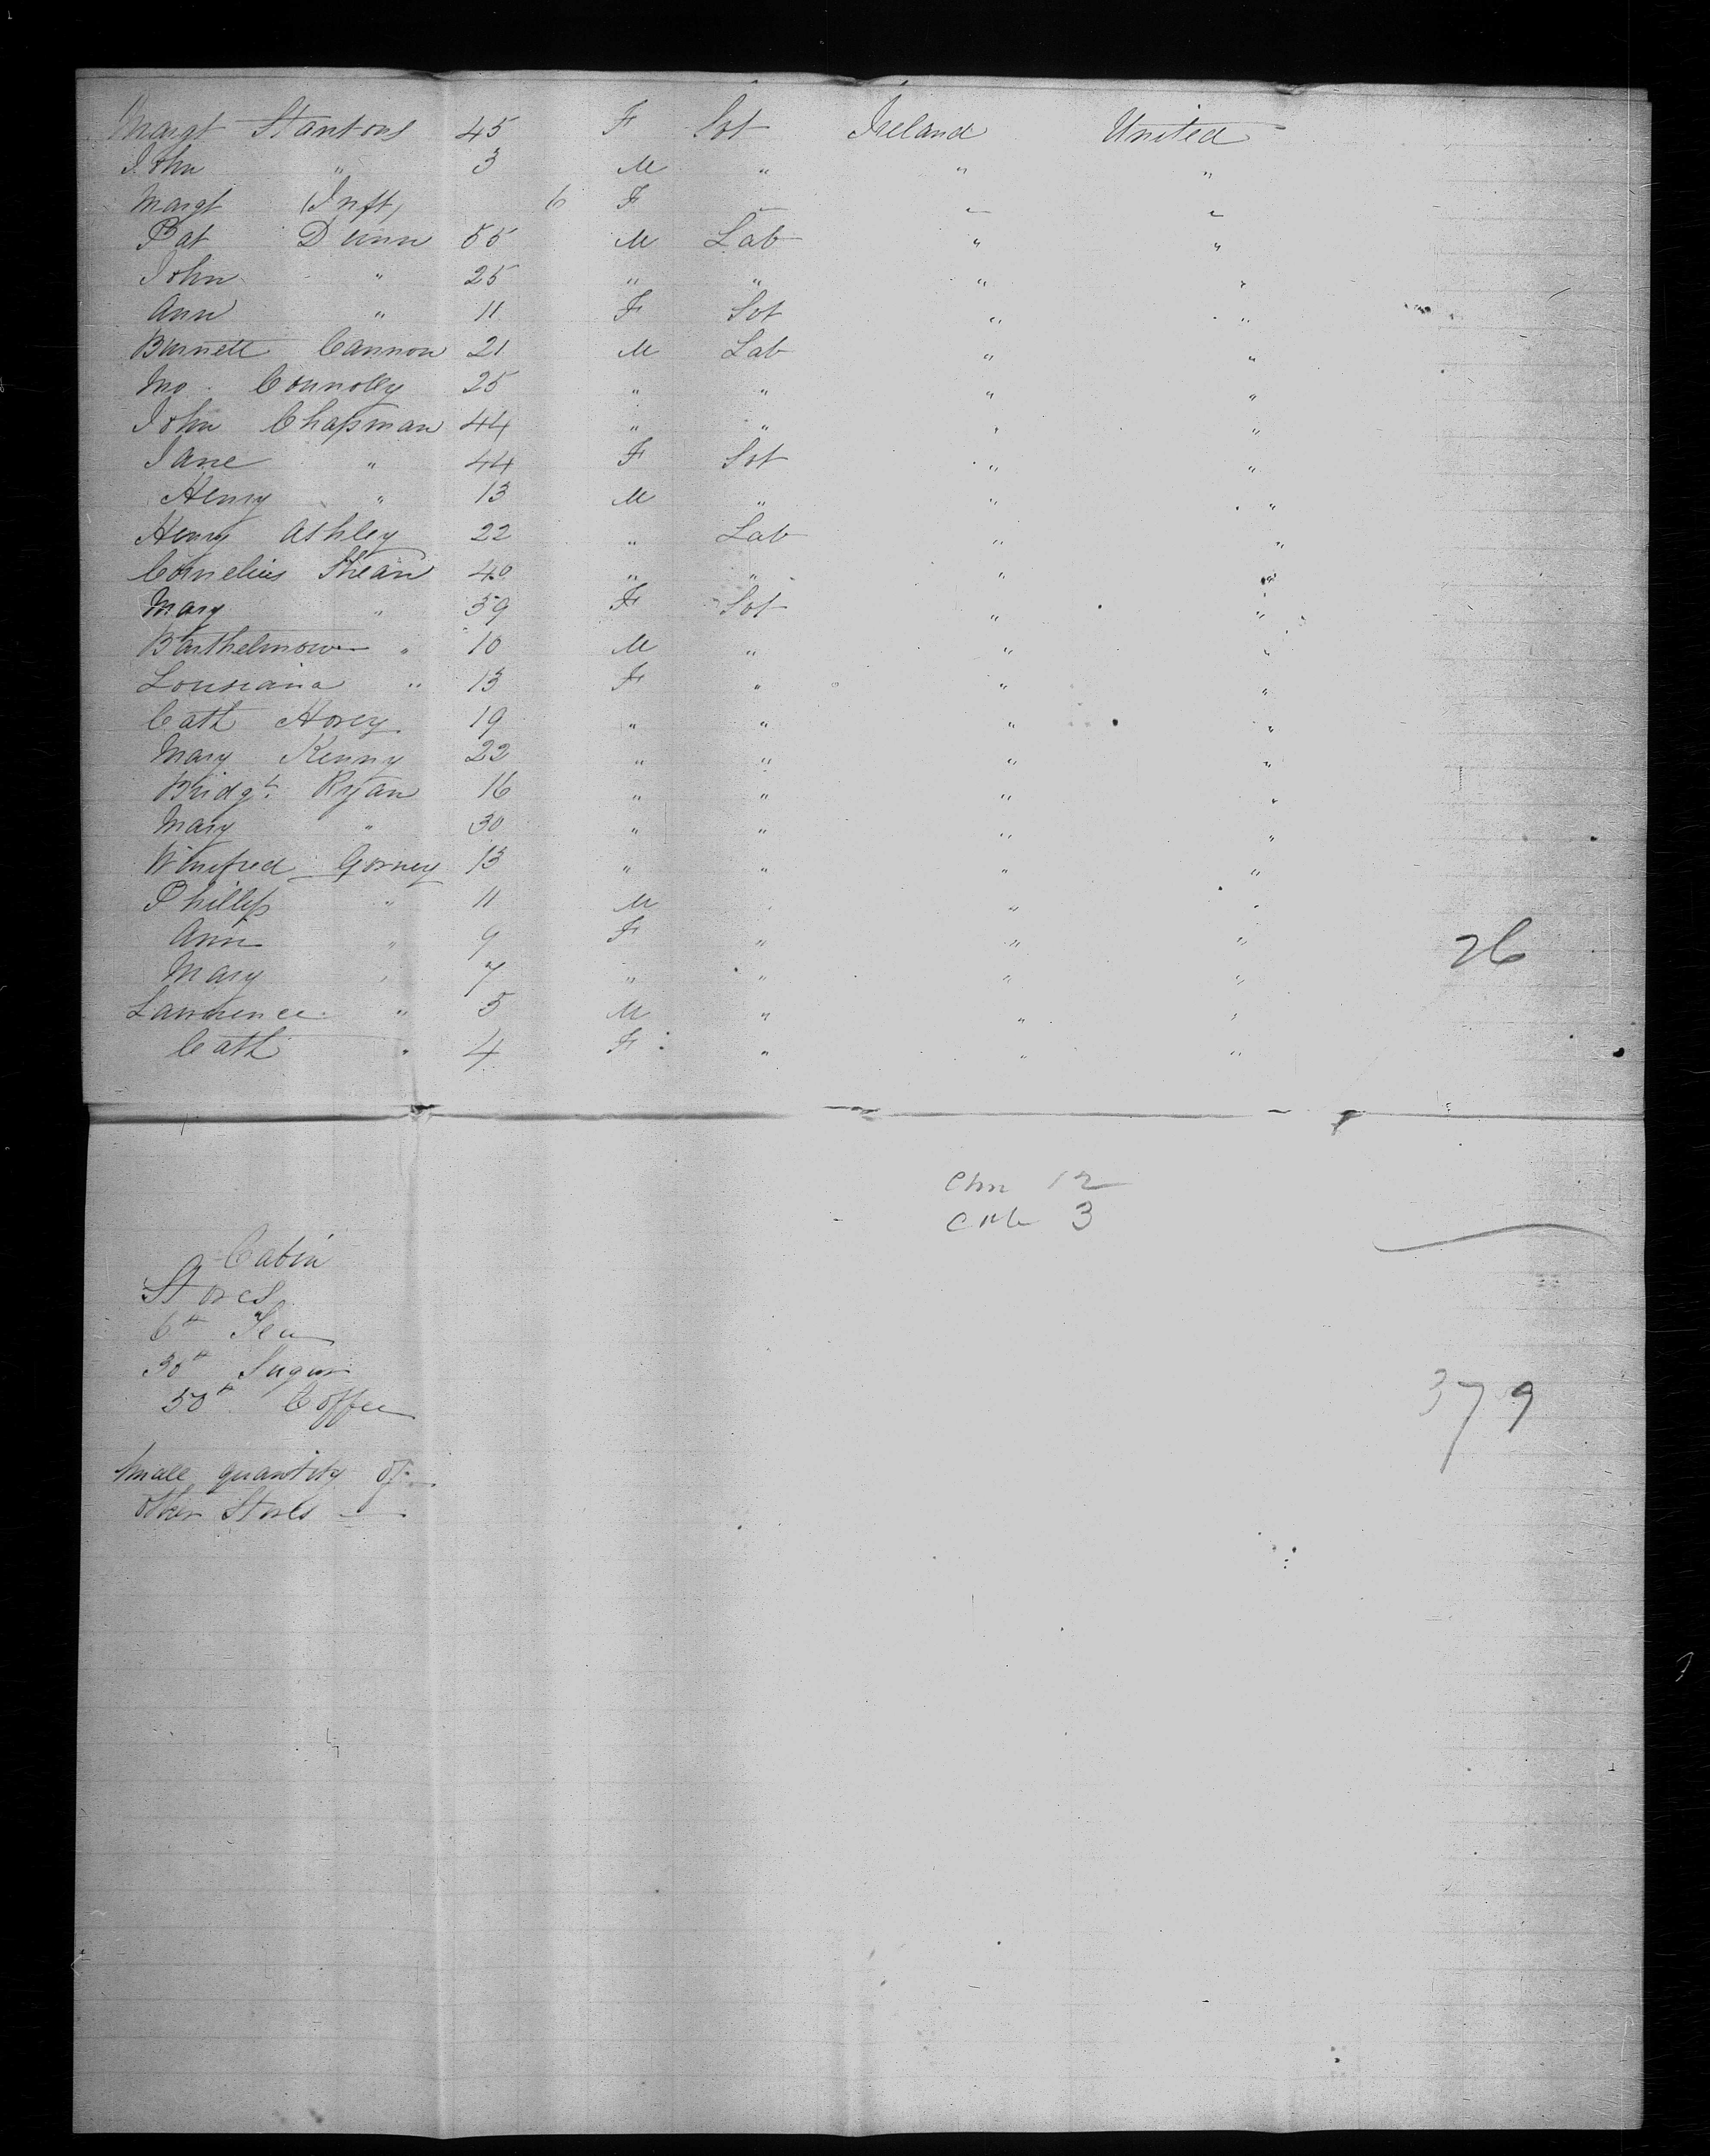 Margt Stantons 45 F Svt Ireland United
John " 3 M " " "
Margt (Inft) 6 F " " "
Pat Dunn 55 M Lab " "
John " 25 " " " "
Ann " 11 F Svt " "
Burnett Cannon 21 M Lab " "
Mo. Connolly 25 " " " "
John Chapman 44 " " " "
Jane " 44 F Svt " "
Henry " 13 M " " "
Henry Ashley 22 " Lab " "
Cornelius Shean 40 " " " "
Mary " 39 F Svt " "
Barthelmow " 10 M " " "
Lousiana " 13 F " " "
Cath Horey 19 " " " "
Mary Kenny 22 " " " "
Bridgt. Ryan 16 " " " "
Mary " 30 " " " "
Winifred Gorney 13 " " " "
Phillip " 11 M " " "
Ann " 9 F " " "
Mary " 7 " " " "
26
Lawrence " 5 M " " "
Cath " 4 F " " "
Chn 12
3
Cabin
Stores
6# Tea
30# Sugar
50# Coffee
379
Small quantity of
other Stores